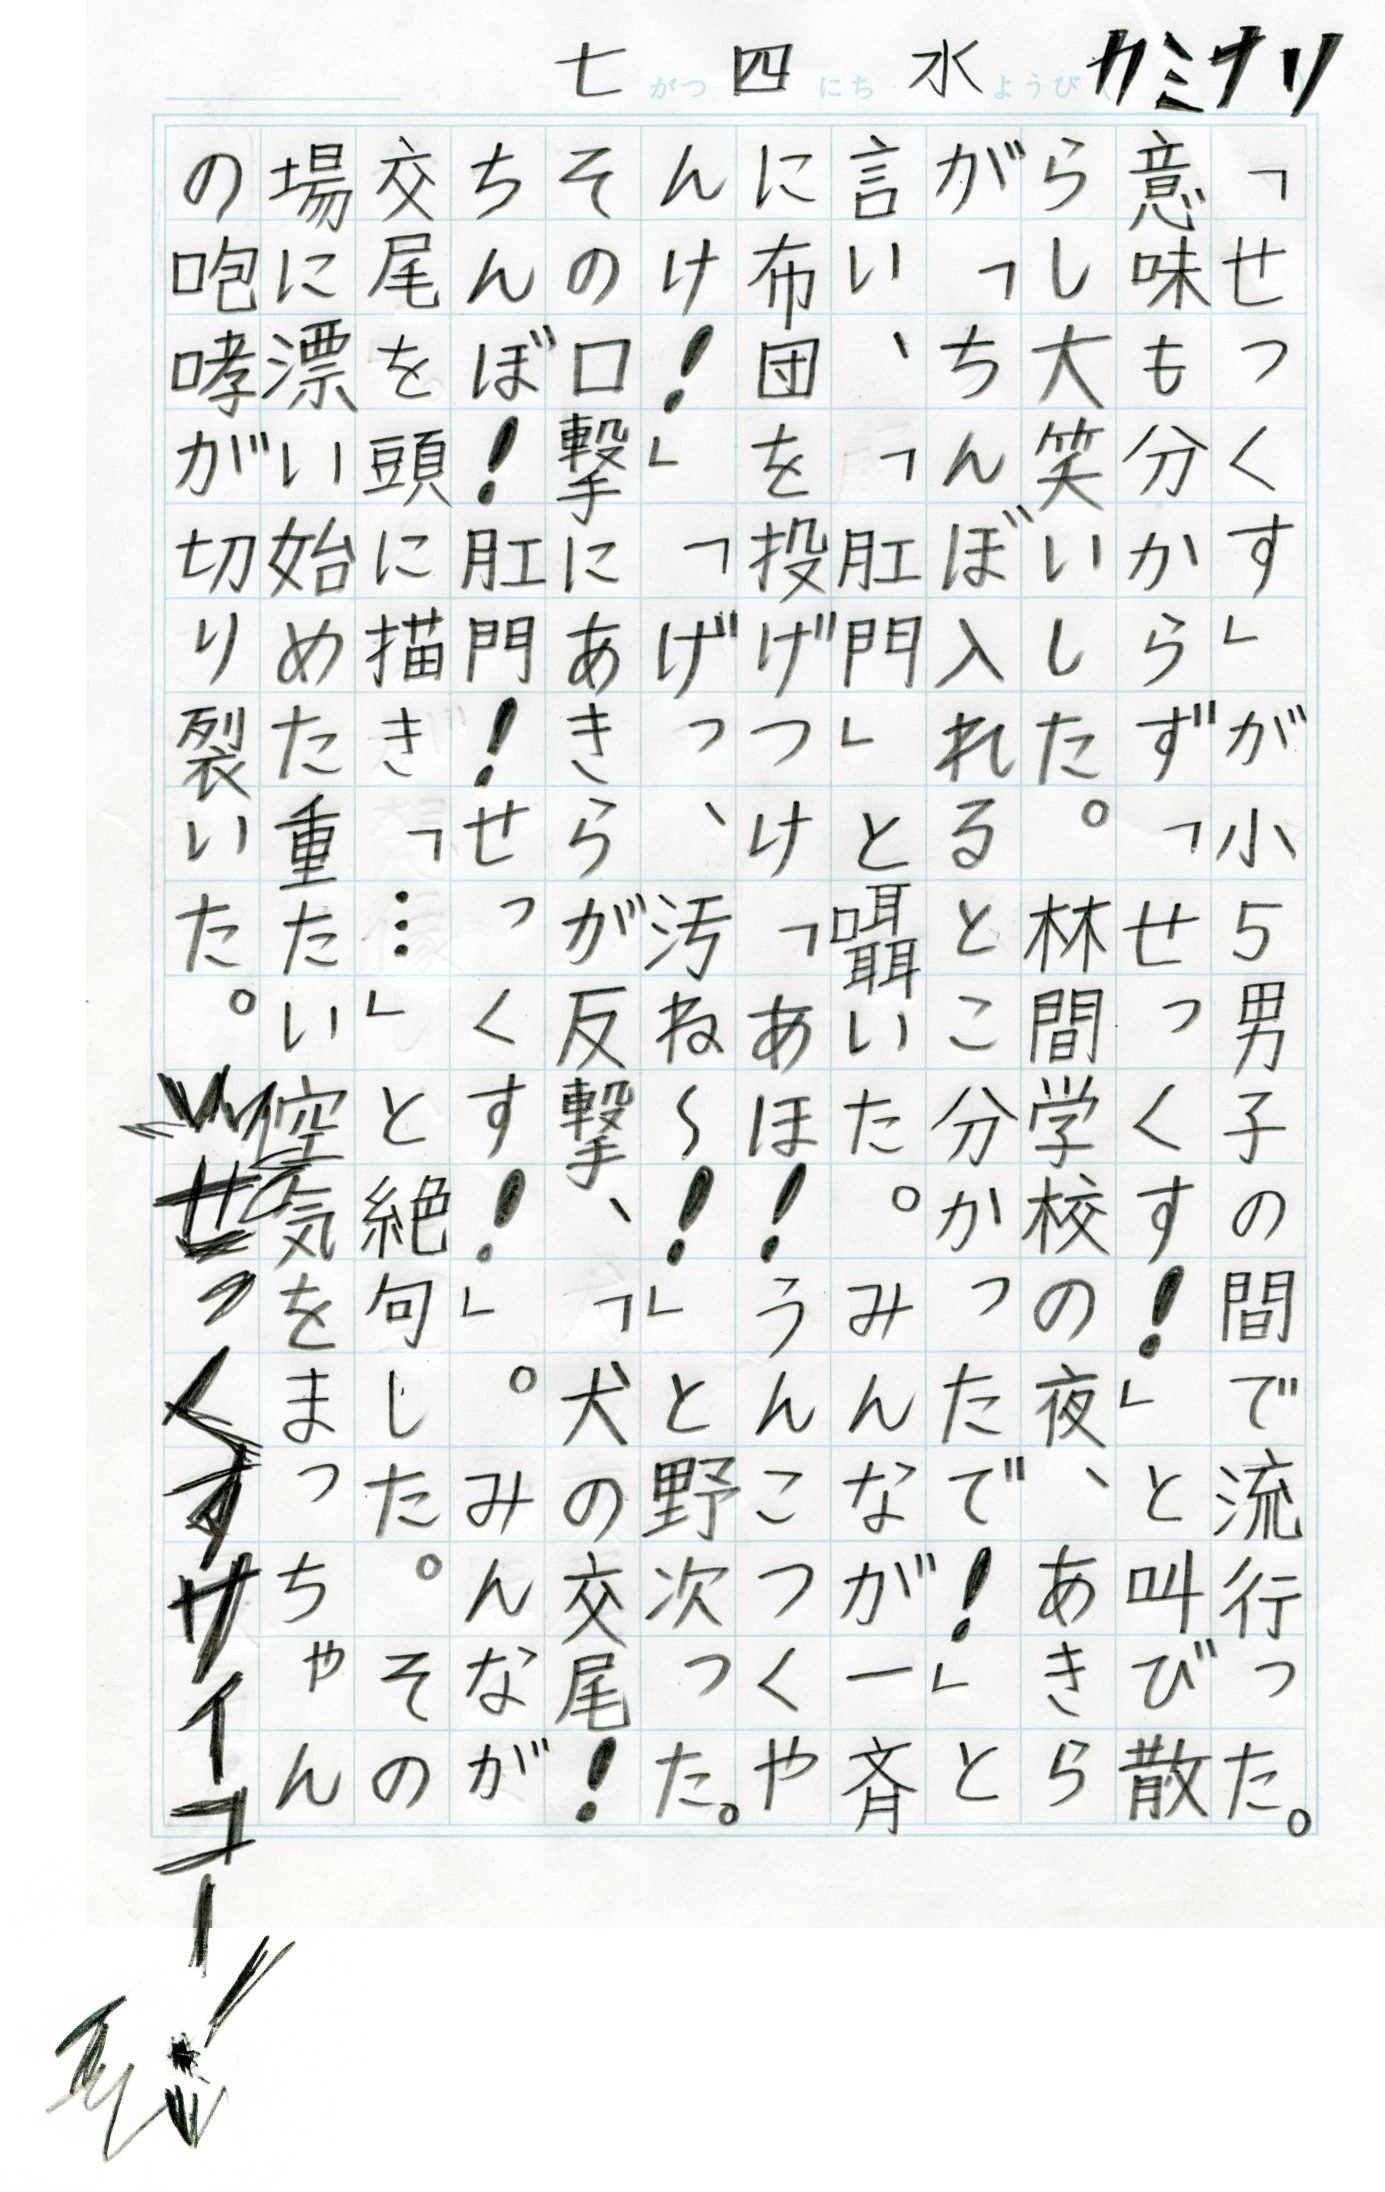 七がつ四にち水ようび カミナリ
「せっくす」が小5男子の間で流行った。
意味も分からず「せっくす!」と叫び散
らし大笑いした。林間学校の夜、あきら
が「ちんぼ入れるとこ分かったで!」と
言い、「肛門」と囁いた。みんなが一斉
に布団を投げつけ「あほ!うんこつくや
んけ!」「げっ、汚ね~!」と野次った。
その口撃にあきらが反撃、「犬の交尾!
ちんぼ!肛門!せっくす!」。みんなが
交尾を頭に描き「…」と絶句した。その
場に漂い始めた重たい空気をまっちゃん
の咆哮が切り裂いた。「せっくすサイコー!」